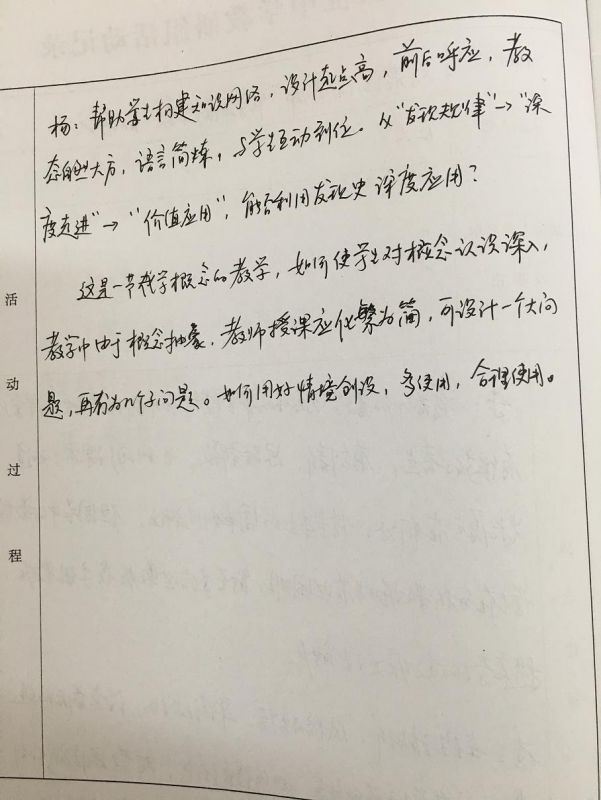 杨：帮助学生构建知识网络，设计起点高，前后呼应，教
态自然大方，语言简炼，与学生互动到位。从“发现规律”→“深
度走进”→“价值应用”，能否利用发现史深度应用？
这是一节数学概念的教学，如何使学生对概念认识深入，
教学中由于概念抽象，教师授课应化繁为简，可设计一个大问
题，再分为几个子问题。如何用好情境创设，多使用，合理使用。
活
动
过
程